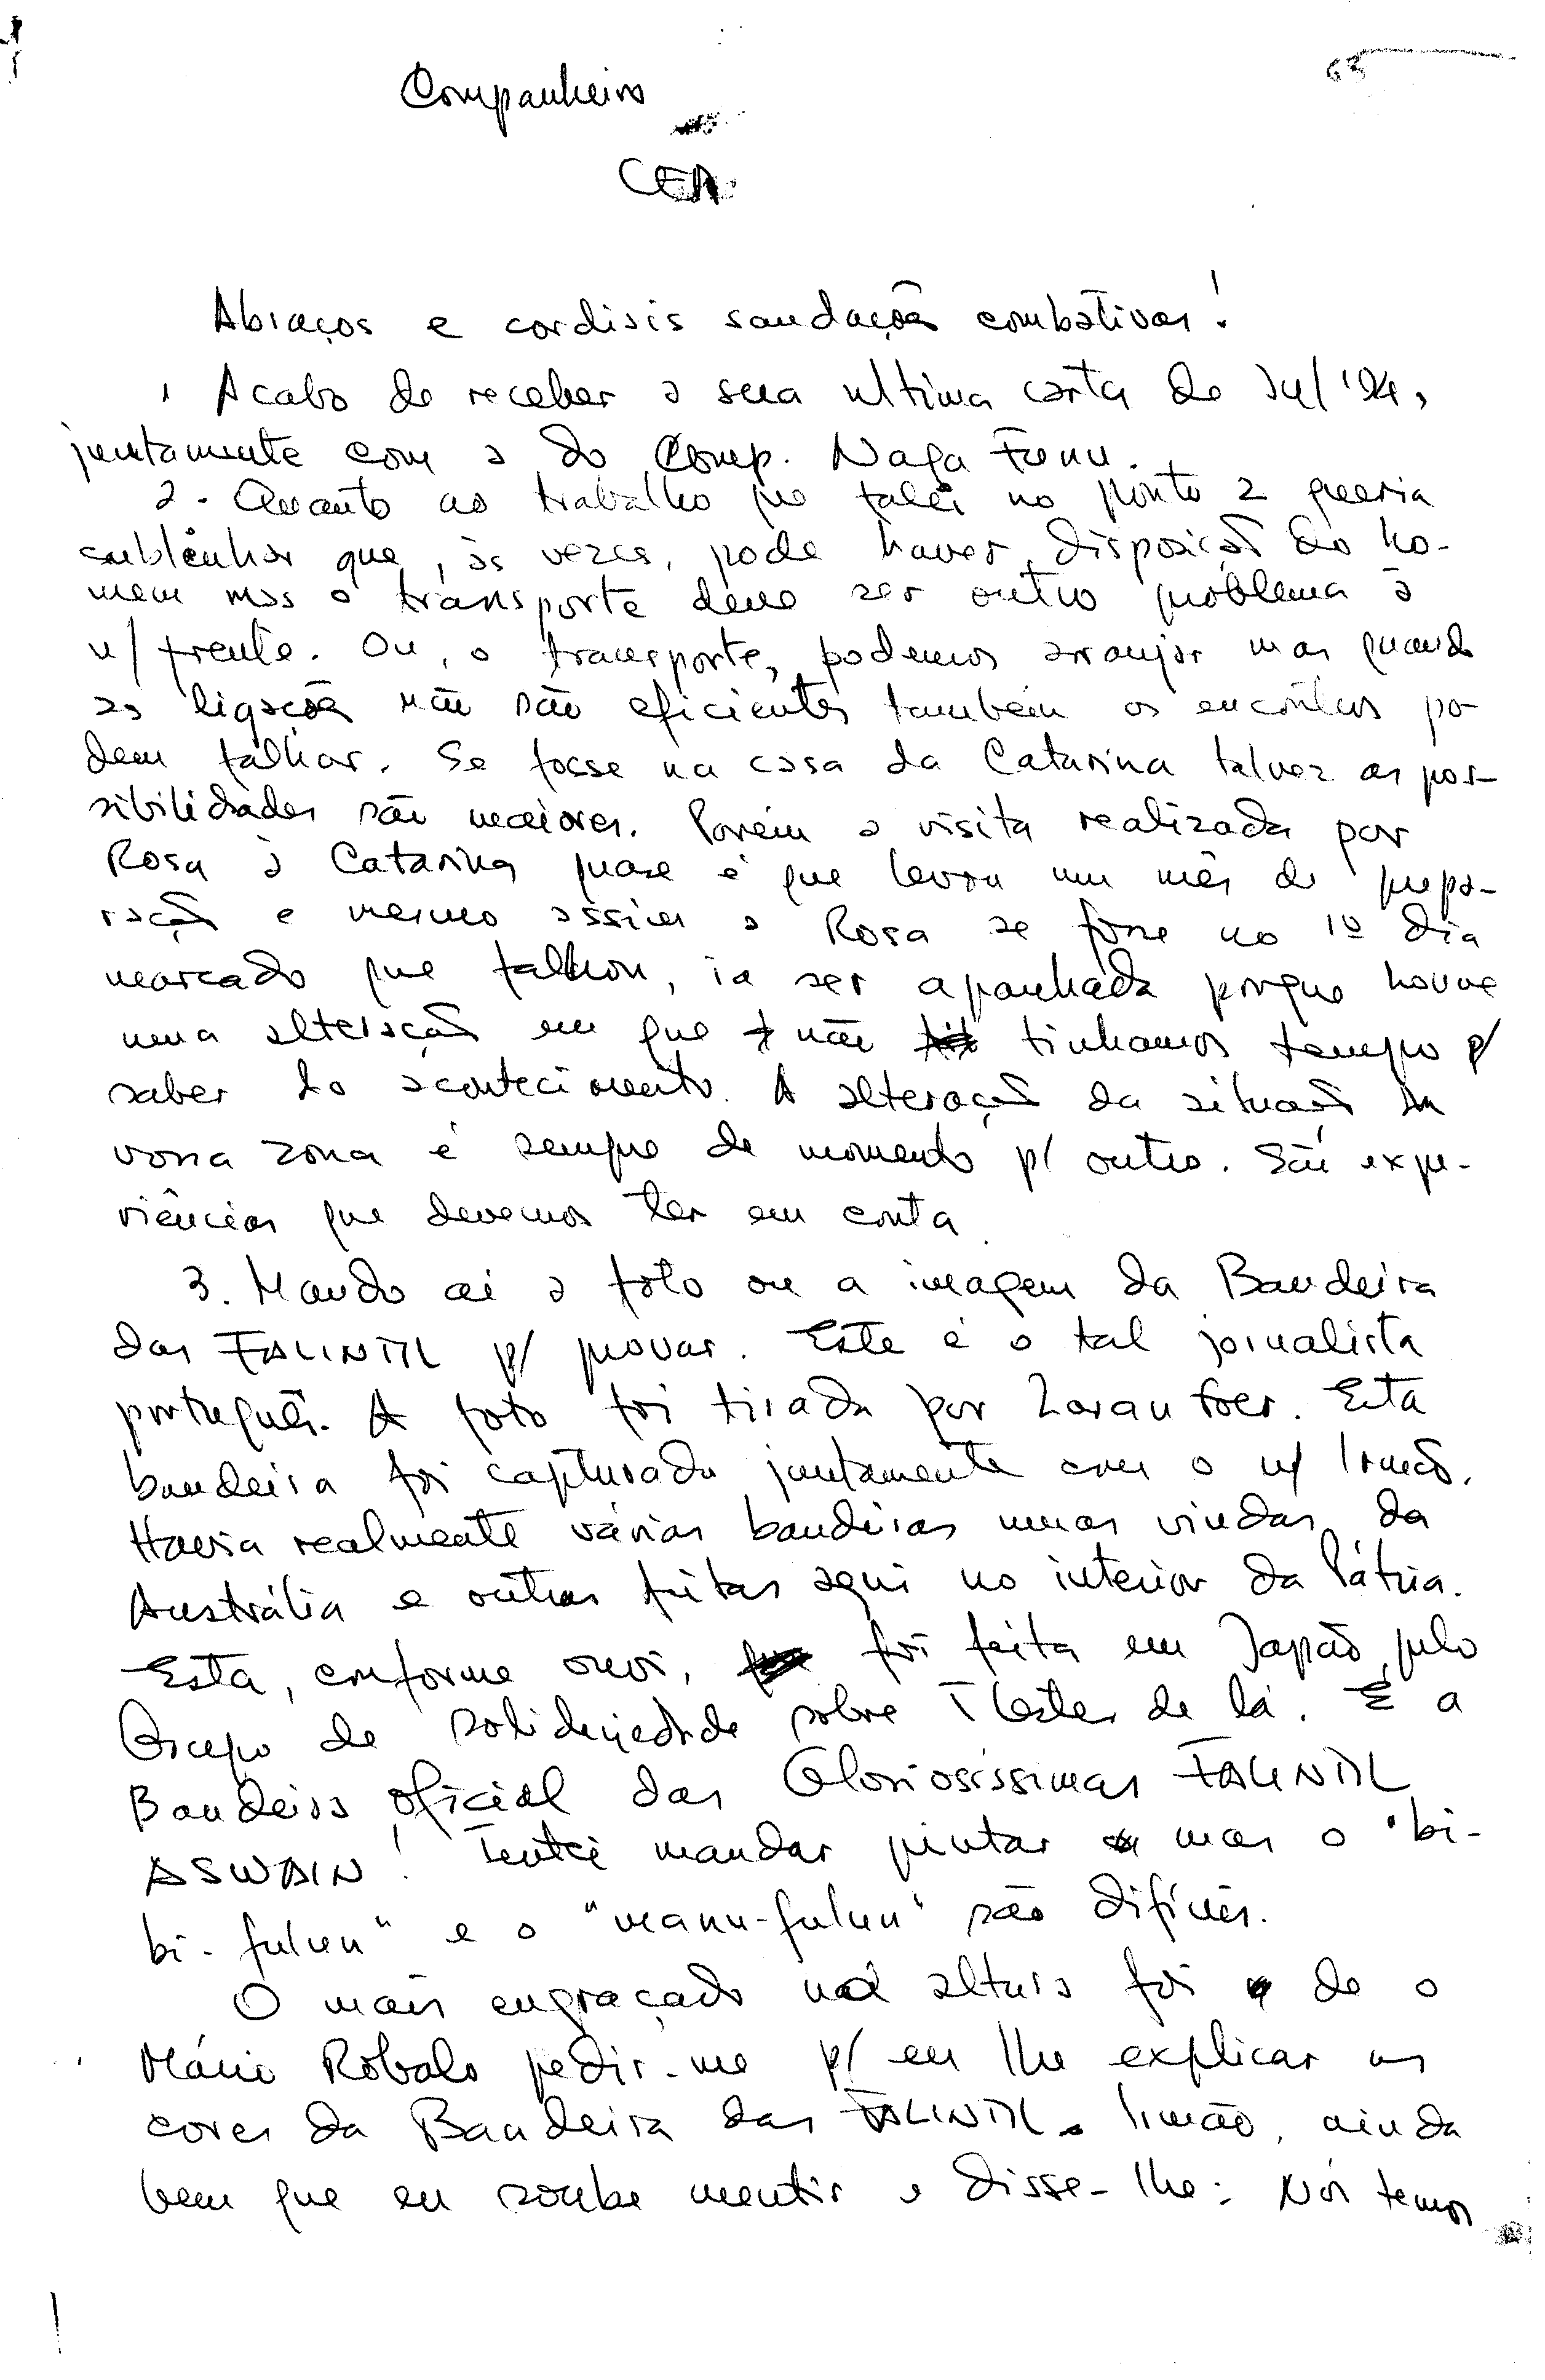 63
Companheiro
CEA
Abraços e cordiais saudações combativas!
1 Acabo de receber a sua ultima carta de Jul/'94,
juntamente com a do Comp. Naga Funu.
2. Quanto ao trabalho que falei no ponto 2 queria
sublinhar que, às vezes, pode haver disposição do ho-
mem mas o transporte deve ser outro problema à
n/ frente. Ou, o transporte, podemos arranjar mas quando
as ligações não são eficientes também os encontros po-
dem falhar. Se fosse na casa da Catarina talvez as pos-
sibilidades são maiores. Porém a visita realizada por
Rosa à Catarina quase é que levou um mês de prepa-
ração e mesmo assim a Rosa se fosse no 1º dia
marcado que falhou, ia ser apanhada porque houve
uma alteração em que não tinhamos tempo p/
saber do acontecimento. A alteração da situação da
vossa zona é sempre de momento p/ outro. São expe-
riências que devemos ter em conta.
3. Mando aí a foto ou a imagem da Bandeira
das FALINTIL p/ provar. Este é o tal jornalista
português. A foto foi tirada por Loran foer. Esta
bandeira foi capturada juntamente com o n/ Irmão.
Havia realmente várias bandeiras umas vindas da
Austrália e outras feitas aqui no interior da Pátria.
Esta, conforme ouvi, foi feita em Japão pelo
Grupo de solidariedade sobre T Leste de lá. É a
Bandeira oficial das Gloriosíssimas FALINTIL
ASWAIN! Tentei mandar pintar mas o "bi-
bi-fulun" e o "manu-fulun" são difíceis.
O mais engraçado na altura foi de o
Mário Robalo pedir-me p/ eu lhe explicar as
cores da Bandeira das FALINTIL. Irmão, ainda
bem que eu soube mentir e disse-lhe: Nós temos